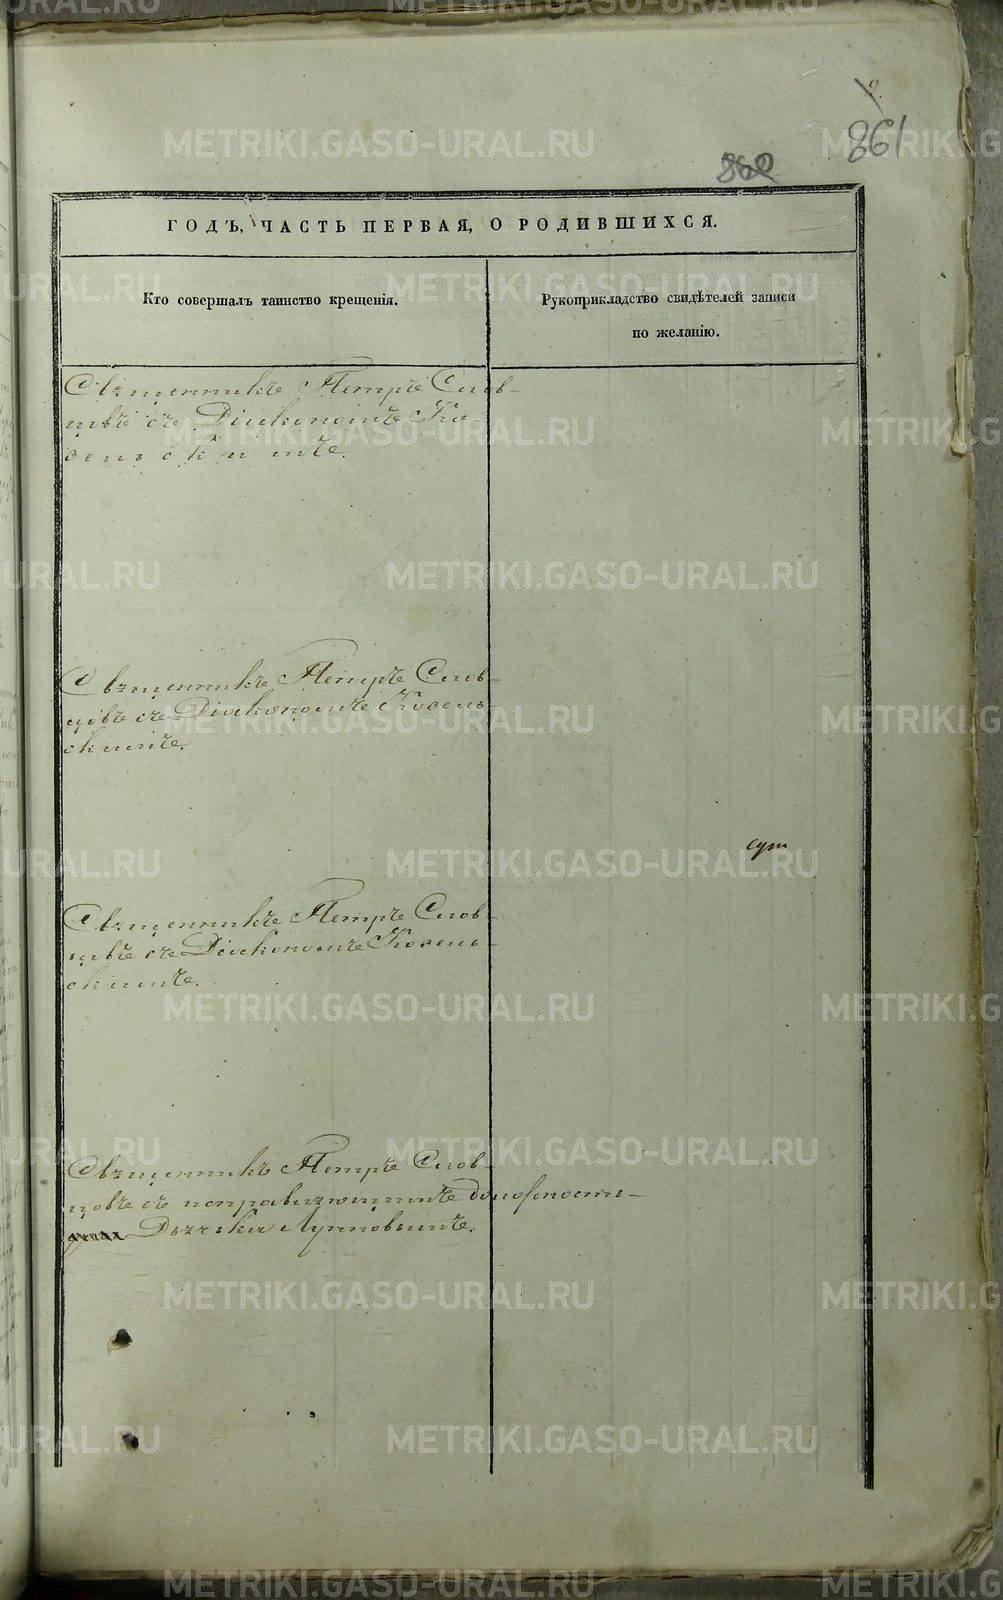 2.
861
860
ГОДЪ, ЧАСТЬ ПЕРВАЯ, О РОДИВШИХСЯ.
Кто совершалъ таинство крещенія.
Рукоприкладство свидѣтелей записи
по желанію.
Священникъ Петръ Слов-
цовъ съ Діакономъ Ко-
зельскимъ.
Священникъ Петръ Слов-
цовъ съ Діакономъ Козель-
скимъ.
сут
Священникъ Петръ Слов-
цовъ съ Діакономъ Козель-
скимъ.
Священникъ Петръ Слов-
цовъ съ исправляющимъ должность
Дьячка Лупповымъ.
METRIKI.GASO-URAL.RU